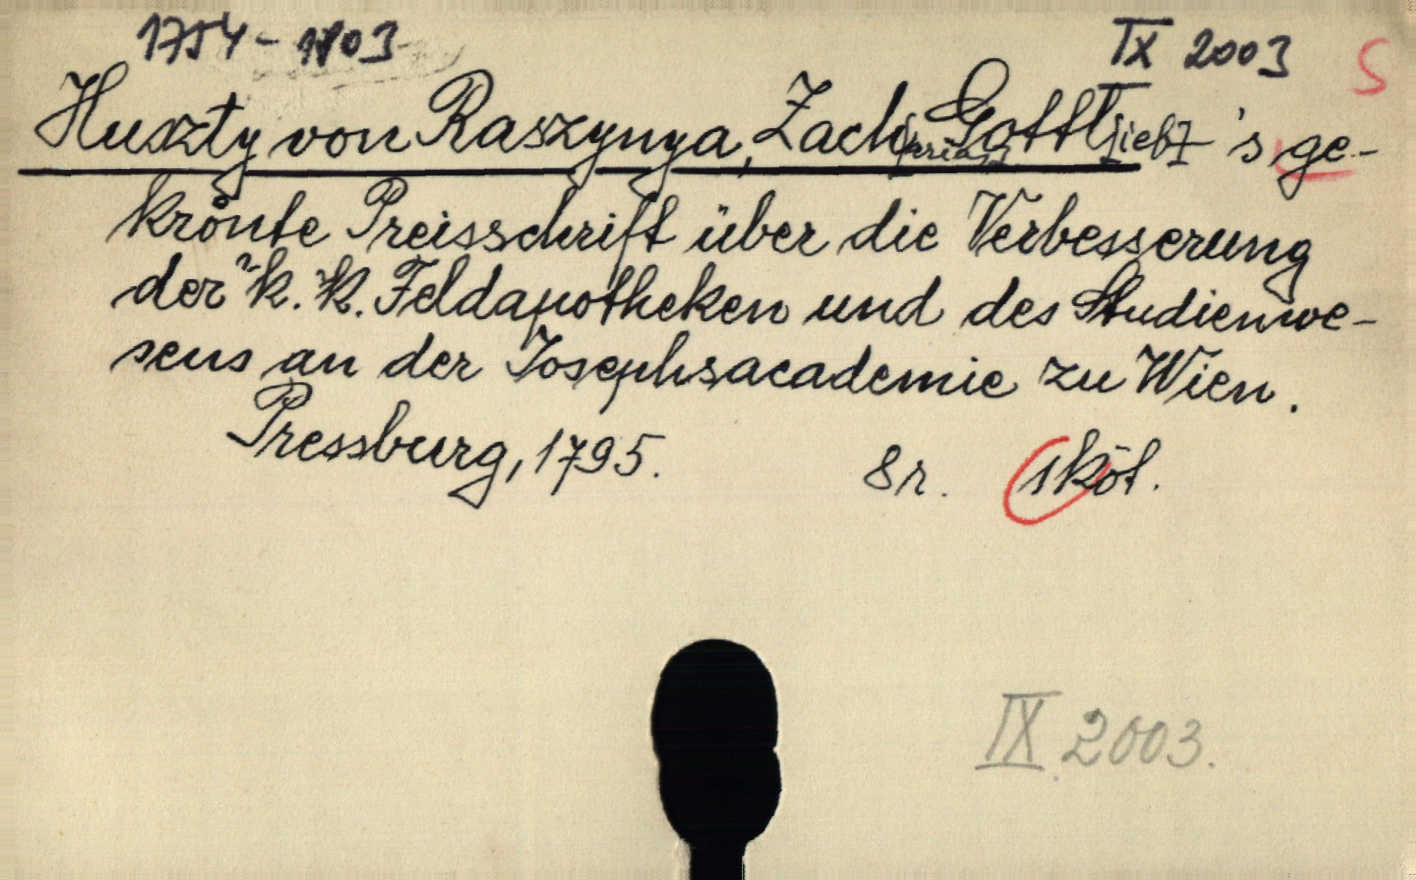 1754-1803 IX 2003 S
Huszty von Raszynya, Zach[arias] Gottl[ieb]'s ge-
krönte Preisschrift über die Verbesserung
der k. k. Feldapotheken und des Studienwe-
sens an der Josephsacademie zu Wien.
Pressburg, 1795. 8r. 1 köt.
IX. 2003.